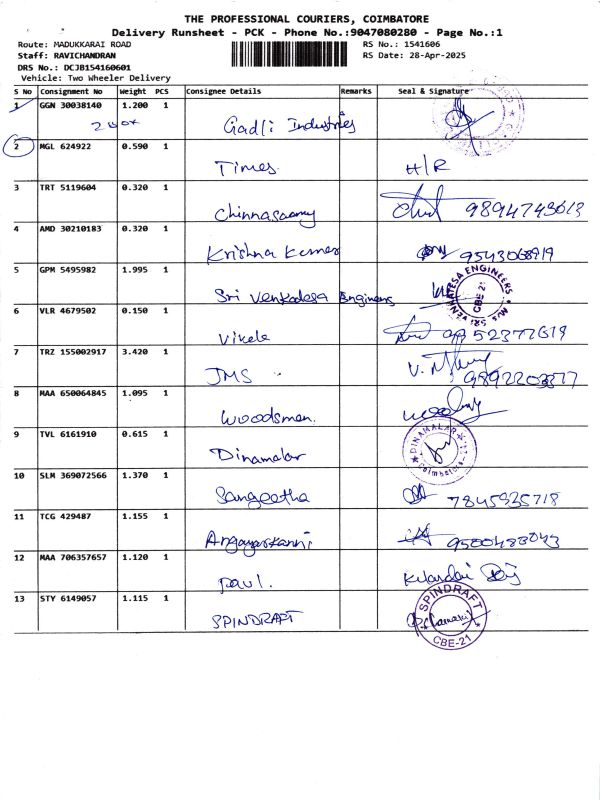 THE PROFESSIONAL COURIERS, COIMBATORE
Delivery Runsheet - PCK - Phone No.:9047080280 - Page No.:1
Route: MADUKKARAI ROAD RS No.: 1541606
Staff: RAVICHANDRAN RS Date: 28-Apr-2025
DRS No.: DCJB154160601
Vehicle: Two Wheeler Delivery
S No Consignment No Weight PCS Consignee Details Remarks Seal & Signature
1 GGN 30038140 1.200 1
Gadli Industries
2 MGL 624922 0.590 1
Times H/R
3 TRT 5119604 0.320 1
Chinnasaamy
4 AMD 30210183 0.320 1
Krishna Kumar 9543068919
5 GPM 5495982 1.995 1
Sri Venkadesa Engineers
VENKATESA ENGINEERS CBE-21
6 VLR 4679502 0.150 1
Vivele
7 TRZ 155002917 3.420 1
JMS
8 MAA 650064845 1.095 1
Woodsmen.
9 TVL 6161910 0.615 1
Dinamalar
DINAMALAR Coimbatore
10 SLM 369072566 1.370 1
Sangeetha 7845935718
11 TCG 429487 1.155 1
12 MAA 706357657 1.120 1
Paul.
13 STY 6149057 1.115 1
SPINDRAFT
SPINDRAFT CBE-21